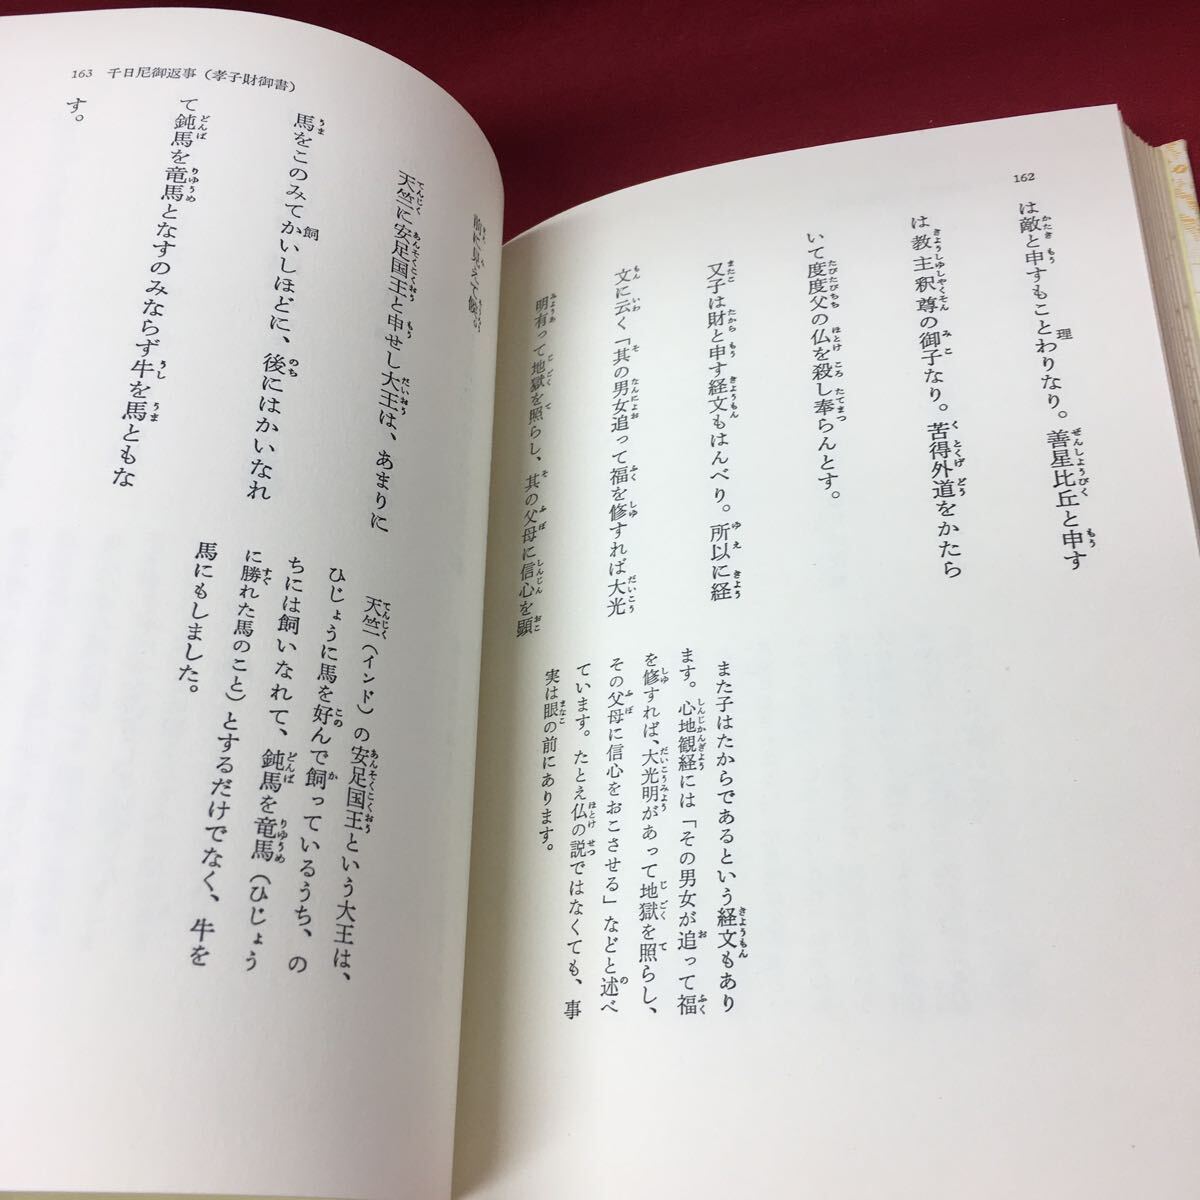 162
は敵と申すもことわりなり。善星比丘と申す
は教主釈尊の御子なり。苦得外道をかたら
いて度度父の仏を殺し奉らんとす。
又子は財と申す経文もはんべり。所以に経
文に云く「其の男女追って福を修すれば大光
明有って地獄を照らし、其の父母に信心を顕
また子はたからであるという経文もあり
ます。心地観経には「その男女が追って福
を修すれば、大光明があって地獄を照らし、
その父母に信心をおこさせる」などと述べ
ています。たとえ仏の説ではなくても、事
実は眼の前にあります。
163 千日尼御返事（孝子財御書）
前に見えて候。
天竺に安足国王と申せし大王は、あまりに
馬をこのみてかいしほどに、後にはかいなれ
て鈍馬を竜馬となすのみならず牛を馬ともな
す。
天竺（インド）の安足国王という大王は、
ひじょうに馬を好んで飼っているうち、の
ちには飼いなれて、鈍馬を竜馬（ひじょう
に勝れた馬のこと）とするだけでなく、牛を
馬にもしました。